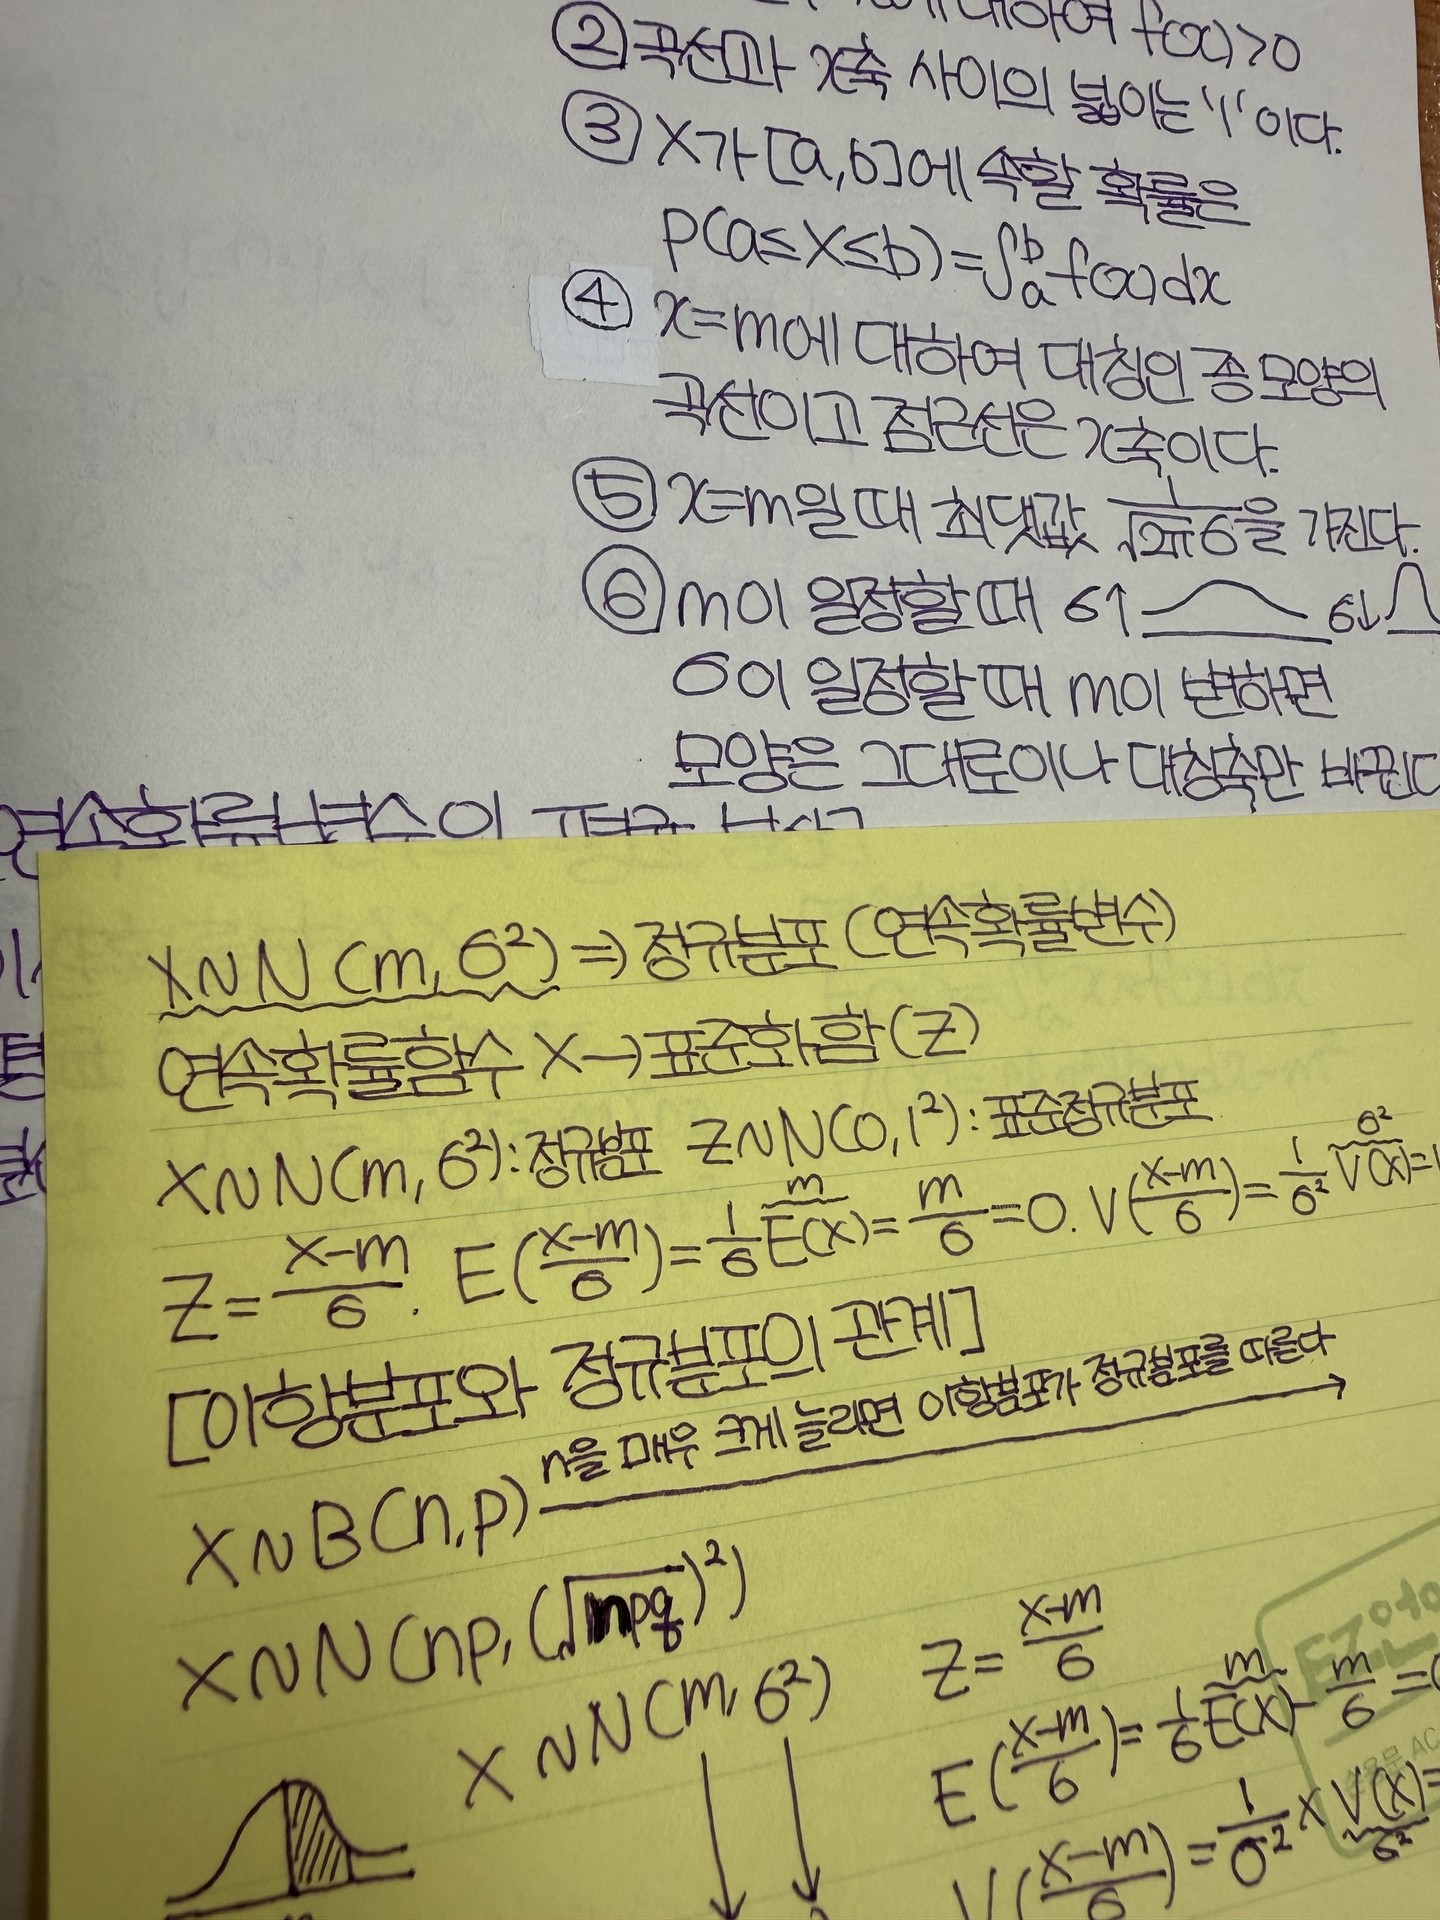 에 대하여 f(x)>0
② 곡선과 x축 사이의 넓이는 "1"이다.
③ X가 [a,b]에 속할 확률은
P(a≤X≤b)=∫ₐᵇ f(x)dx
④ x=m에 대하여 대칭인 종 모양의
곡선이고 점근선은 x축이다.
⑤ x=m일 때 최댓값 1/√2πσ을 가진다.
⑥ m이 일정할 때 σ↑ σ↓
σ이 일정할 때 m이 변하면
모양은 그대로이나 대칭축만 바뀐다
연속확률변수의 평균
X~N(m,σ²) ⇒ 정규분포 (연속확률변수)
연속확률함수 X → 표준화함(Z)
X~N(m,σ²):정규분포 Z~N(0,1²):표준정규분포
Z=(X-m)/σ. E((X-m)/σ)=1/σ E(X)=m/σ=0. V((X-m)/σ)=1/σ² V(X)=1
m σ²
[이항분포와 정규분포의 관계]
n을 매우 크게 늘리면 이항분포가 정규분포를 따른다
X~B(n,p)
X~N(np,(√npq)²)
X~N(m,σ²)
Z=(X-m)/σ
E((X-m)/σ)=1/σ E(X)-m/σ=
m
V((X-m)/σ)=1/σ²×V(X)=
σ²